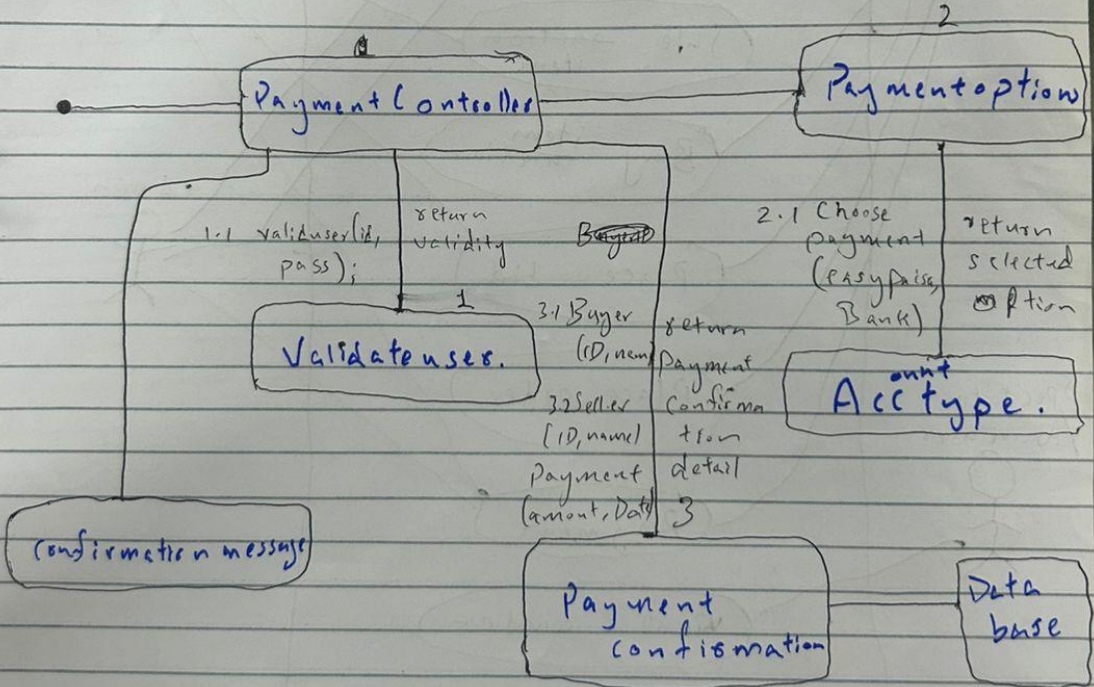 2
Payment Controller
Payment option
1.1 validuser(id,
pass);
return
validity
2.1 Choose
payment
(easypaisa,
Bank)
return
selected
option
1
Validate user.
3.1 Buyer
(ID, nam
3.2 Seller
(ID, name)
Payment
(amout, Date)
return
Payment
confirma
tion
detail
3
Account type.
Confirmation message
Payment
confirmation
Data
base